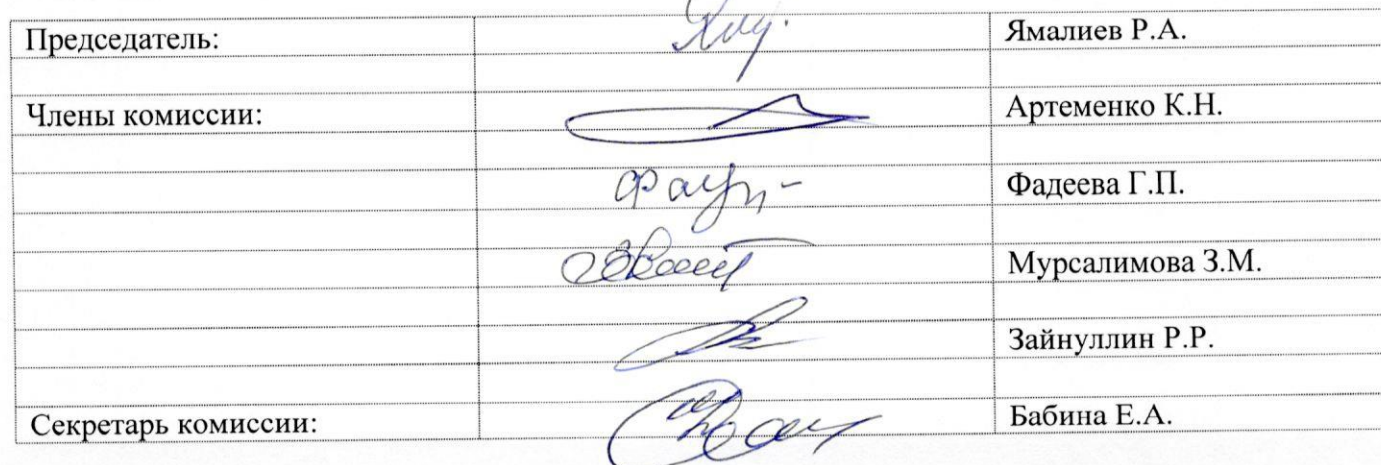 Председатель: Ямалиев Р.А.
Члены комиссии: Артеменко К.Н.
Фадеева Г.П.
Мурсалимова З.М.
Зайнуллин Р.Р.
Секретарь комиссии: Бабина Е.А.